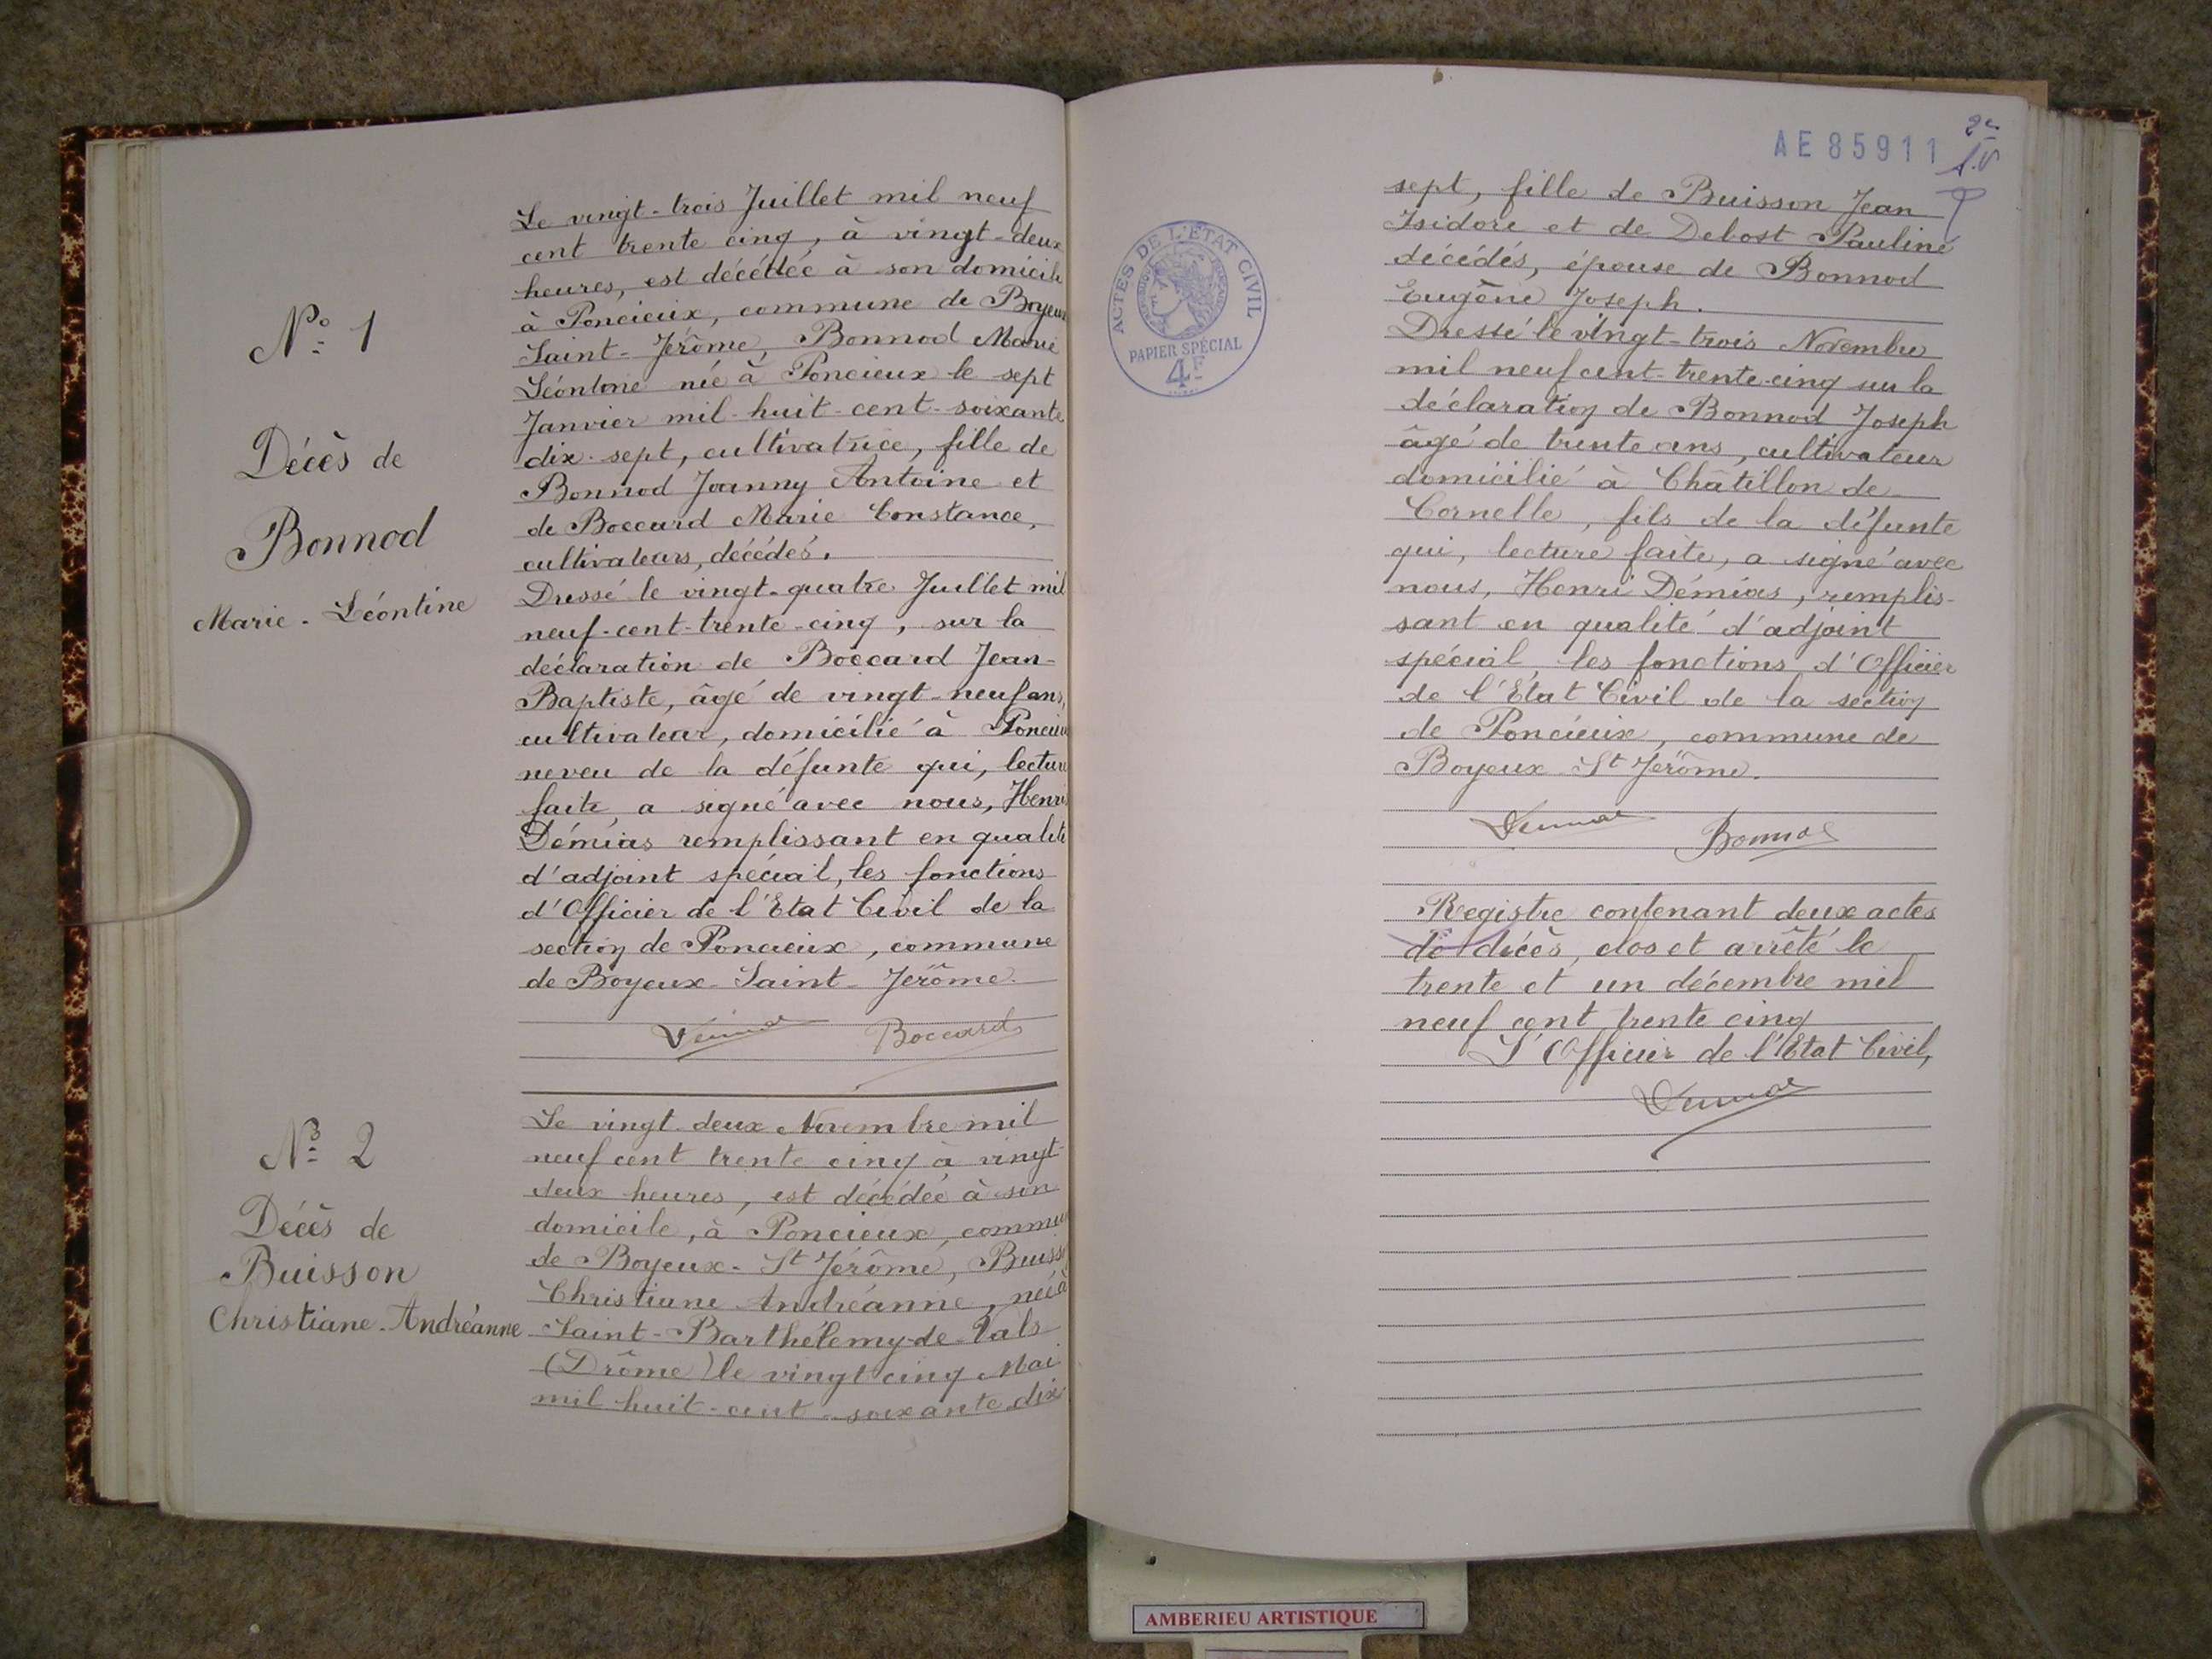 N° 1
Décès de
Bonnod
Marie - Léontine
Le vingt-trois Juillet mil neuf
cent trente cinq, à vingt-deux
heures, est décédée à son domicile
à Poncieux, commune de Boyeux
Saint-Jérôme, Bonnod Marie
Léontine née à Poncieux le sept
Janvier mil-huit-cent-soixante
dix-sept, cultivatrice, fille de
Bonnod Joanny Antoine et
de Boccard Marie Constance,
cultivateurs, décédés.
Dressé le vingt-quatre Juillet mil
neuf-cent-trente-cinq, sur la
déclaration de Boccard Jean-
Baptiste, âgé de vingt-neuf ans,
cultivateur, domicilié à Poncieux
neveu de la défunte qui, lecture
faite, a signé avec nous, Henri
Démias remplissant en qualité
d'adjoint spécial, les fonctions
d'Officier de l'Etat Civil de la
section de Poncieux, commune
de Boyeux-Saint-Jérôme.
Démias Boccard
N° 2
Décès de
Buisson
Christiane-Andréanne
Le vingt-deux Novembre mil
neuf cent trente cinq à vingt-
deux heures, est décédée à son
domicile, à Poncieux, commu
de Boyeux-St Jérôme, Buiss
Christiane Andréanne, née à
Saint-Barthélemy-de-Vals
(Drôme) le vingt cinq Mai
mil huit-cent-soixante-dix
AE 85911
2e
ACTES DE L'ÉTAT CIVIL
PAPIER SPÉCIAL
4F
sept, fille de Buisson Jean
Isidore et de Debost Pauline
décédés, épouse de Bonnod
Eugène Joseph.
Dressé le vingt-trois Novembre
mil neuf cent-trente-cinq sur la
déclaration de Bonnod Joseph
âgé de trente ans, cultivateur
domicilié à Châtillon de
Cornelle, fils de la défunte
qui, lecture faite, a signé avec
nous, Henri Démias, remplis-
sant en qualité d'adjoint
spécial, les fonctions d'Officier
de l'Etat Civil de la section
de Poncieux, commune de
Boyeux-St Jérôme.
Démias Bonnod
Registre contenant deux actes
de décès, clos et arrêté le
trente et un décembre mil
neuf cent trente cinq
L'Officier de l'Etat Civil,
Démias
AMBERIEU ARTISTIQUE